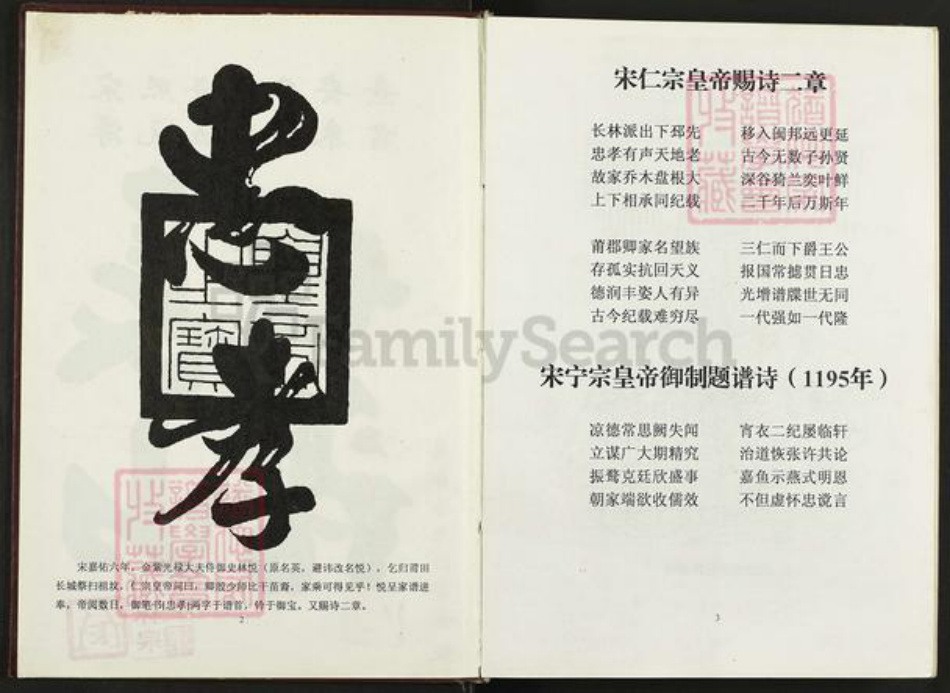 忠孝
宋嘉佑六年，金紫光禄大夫侍御史林悦（原名英，避讳改名悦），乞归莆田
长城祭扫祖坟，仁宗皇帝问曰，卿殷少师比干苗裔，家乘可得见乎！悦呈家谱进
奉，帝阅数日，御笔书忠孝两字于谱首，钤于御宝，又赐诗二章。
2
宋仁宗皇帝赐诗二章
长林派出下邳先 移入闽邦远更延
忠孝有声天地老 古今无数子孙贤
故家乔木盘根大 深谷猗兰奕叶鲜
上下相承同纪载 二千年后万斯年
莆郡卿家名望族 三仁而下爵王公
存孤实抗回天义 报国常摅贯日忠
德润丰姿人有异 光增谱牒世无同
古今纪载难穷尽 一代强如一代隆
宋宁宗皇帝御制题谱诗（1195年）
凉德常思阙失闻 宵衣二纪屡临轩
立谋广大期精究 治道恢张许共论
振鹭克廷欣盛事 嘉鱼示燕式明恩
朝家端欲收儒效 不但虚怀忠谠言
3
FamilySearch